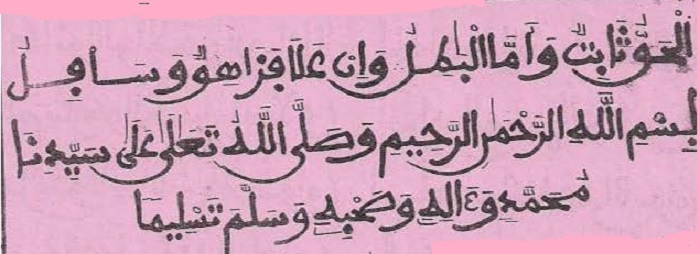 اَلْحَقُّ ثَابِتٌ وَأَمَّا الْبَٰطِلُ وَإِن عَلَا فَزَاهِقٌ وَسَافِلٌ
بِسْمِ اللَّهِ الرَّحْمَٰنِ الرَّحِيمِ وَصَلَّى اللَّهُ تَعَلَىٰ عَلَىٰ سَيِّدِنَا
مُحَمَّدٍ وَءَالِهِ وَصَحْبِهِ وَسَلَّمَ تَسْلِيمًا